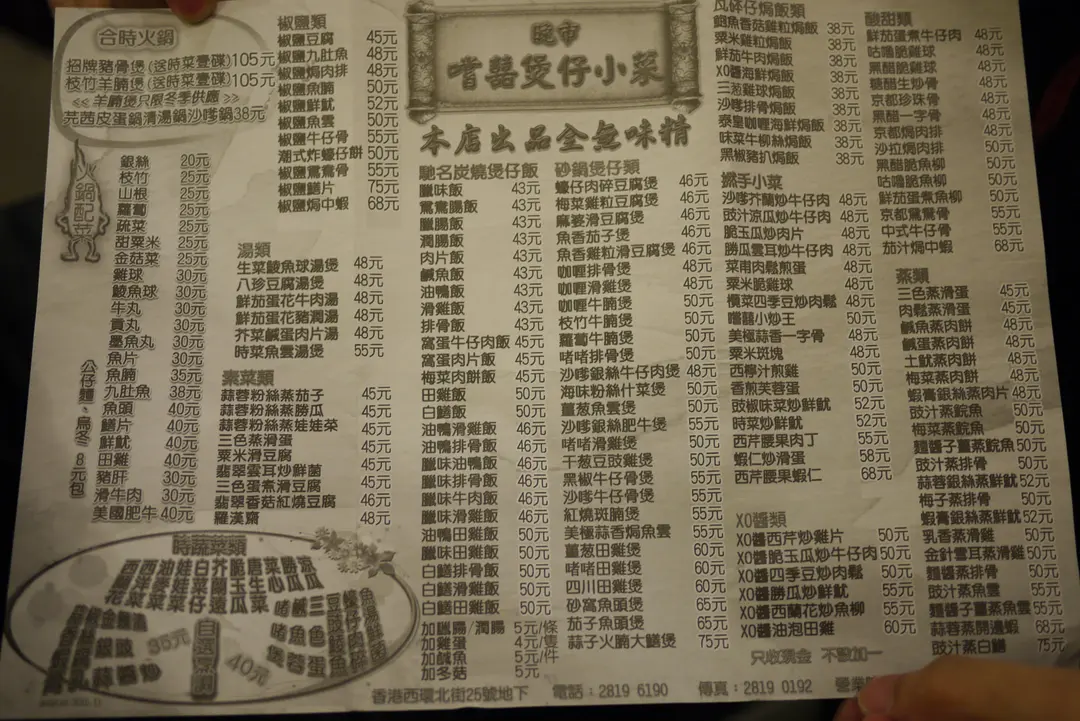 合時火鍋
招牌豬骨煲(送時菜壹碟)105元
枝竹羊腩煲(送時菜壹碟)105元
<< 羊腩煲只限冬季供應 >>
芫茜皮蛋鍋清湯鍋沙嗲鍋38元
火鍋配菜
銀絲 20元
枝竹 25元
山根 25元
蘿蔔 25元
蔬菜 25元
甜粟米 25元
金菇菜 25元
雞球 30元
鯪魚球 30元
牛丸 30元
貢丸 30元
墨魚丸 30元
魚片 30元
魚腩 35元
九肚魚 38元
魚頭 40元
鱔片 40元
鮮魷 40元
田雞 40元
豬肝 30元
滑牛肉 30元
美國肥牛 40元
公仔麵、烏冬8元包
椒鹽類
椒鹽豆腐 45元
椒鹽九肚魚 48元
椒鹽焗肉排 48元
椒鹽魚腩 50元
椒鹽鮮魷 52元
椒鹽魚雲 50元
椒鹽牛仔骨 55元
潮式炸蠔仔餅 50元
椒鹽鴛鴦骨 55元
椒鹽鱔片 75元
椒鹽焗中蝦 68元
湯類
生菜鯪魚球湯煲 48元
八珍豆腐湯煲 48元
鮮茄蛋花牛肉湯 48元
鮮茄蛋花豬潤湯 48元
芥菜鹹蛋肉片湯 48元
時菜魚雲湯煲 55元
素菜類
蒜蓉粉絲蒸茄子 45元
蒜蓉粉絲蒸勝瓜 45元
蒜蓉粉絲蒸娃娃菜 45元
三色蒸滑蛋 45元
粟米滑豆腐 45元
翡翠雲耳炒鮮菌 45元
三色蛋煮滑豆腐 46元
翡翠香菇紅燒豆腐 46元
羅漢齋 48元
時蔬菜類
西蘭花
西洋菜
油麥菜
娃娃菜
白菜仔
芥蘭
脆玉瓜
唐生菜
菜心
勝瓜
涼瓜
35元
自選烹調
40元
晚市
嚐囍煲仔小菜
本店出品全無味精
馳名炭燒煲仔飯
臘味飯 43元
鴛鴦腸飯 43元
臘腸飯 43元
潤腸飯 43元
肉片飯 43元
鹹魚飯 43元
油鴨飯 43元
滑雞飯 43元
排骨飯 43元
窩蛋牛仔肉飯 45元
窩蛋肉片飯 45元
梅菜肉餅飯 45元
田雞飯 50元
白鱔飯 50元
油鴨滑雞飯 46元
油鴨排骨飯 46元
臘味油鴨飯 46元
臘味排骨飯 46元
臘味牛肉飯 46元
臘味滑雞飯 46元
油鴨田雞飯 50元
臘味田雞飯 50元
白鱔排骨飯 50元
白鱔滑雞飯 50元
白鱔田雞飯 50元
加臘腸/潤腸 5元/條
加雞蛋 4元/隻
加鹹魚 5元/件
加冬菇 5元
砂鍋煲仔類
蠔仔肉碎豆腐煲 46元
梅菜雞粒豆腐煲 46元
麻婆滑豆腐煲 46元
魚香茄子煲 46元
魚香雞粒滑豆腐煲 46元
咖喱排骨煲 48元
咖喱滑雞煲 48元
咖喱牛腩煲 50元
枝竹牛腩煲 50元
蘿蔔牛腩煲 50元
啫啫排骨煲 50元
沙嗲銀絲牛仔肉煲 48元
海味粉絲什菜煲 50元
薑葱魚雲煲 50元
沙嗲銀絲肥牛煲 55元
啫啫滑雞煲 50元
干葱豆豉雞煲 50元
黑椒牛仔骨煲 55元
沙嗲牛仔骨煲 55元
紅燒斑腩煲 55元
美極蒜香焗魚雲 55元
薑葱田雞煲 60元
啫啫田雞煲 60元
四川田雞煲 60元
砂窩魚頭煲 65元
茄子魚頭煲 65元
蒜子火腩大鱔煲 75元
瓦砵仔焗飯類
鮑魚香菇雞粒焗飯 38元
粟米雞粒焗飯 38元
鮮茄牛肉焗飯 38元
XO醬海鮮焗飯 38元
三葱雞球焗飯 38元
沙嗲排骨焗飯 38元
泰皇咖喱海鮮焗飯 38元
味菜牛柳絲焗飯 38元
黑椒豬扒焗飯 38元
撚手小菜
沙嗲芥蘭炒牛仔肉 48元
豉汁涼瓜炒牛仔肉 48元
脆玉瓜炒肉片 48元
勝瓜雲耳炒牛仔肉 48元
菜甫肉鬆煎蛋 48元
粟米脆雞球 48元
欖菜四季豆炒肉鬆 48元
嚐囍小炒王 50元
美極蒜香一字骨 48元
粟米斑塊 48元
西檸汁煎雞 50元
香煎芙蓉蛋 50元
豉椒味菜炒鮮魷 52元
時菜炒鮮魷 52元
西芹腰果肉丁 55元
蝦仁炒滑蛋 58元
西芹腰果蝦仁 68元
XO醬類
XO醬西芹炒雞片 50元
XO醬脆玉瓜炒牛仔肉 50元
XO醬四季豆炒肉鬆 50元
XO醬勝瓜炒鮮魷 55元
XO醬西蘭花炒魚柳 50元
XO醬油泡田雞 60元
只收現金 不設加一
酸甜類
鮮茄蛋煮牛仔肉 48元
咕嚕脆雞球 48元
黑醋脆雞球 48元
糖醋生炒骨 48元
京都珍珠骨 48元
黑醋一字骨 48元
京都焗肉排 48元
沙拉焗肉排 48元
黑醋脆魚柳 50元
咕嚕脆魚柳 50元
鮮茄蛋煮魚柳 50元
京都鴛鴦骨 55元
中式牛仔骨 55元
茄汁焗中蝦 68元
蒸類
三色蒸滑蛋 45元
肉鬆蒸滑蛋 45元
鹹魚蒸肉餅 48元
鹹蛋蒸肉餅 48元
土魷蒸肉餅 48元
梅菜蒸肉餅 48元
蝦膏銀絲蒸肉片 48元
豉汁蒸鯇魚 50元
梅菜蒸鯇魚 50元
麵醬子薑蒸鯇魚 50元
豉汁蒸排骨 50元
蒜蓉銀絲蒸鮮魷 52元
梅子蒸排骨 50元
蝦膏銀絲蒸鮮魷 52元
乳香蒸滑雞 50元
金針雲耳蒸滑雞 50元
麵醬蒸排骨 50元
豉汁蒸魚雲 50元
麵醬子薑蒸魚雲 55元
蒜蓉蒸開邊蝦 68元
豉汁蒸白鱔 75元
香港西環北街25號地下 電話：2819 6190 傳真：2819 0192